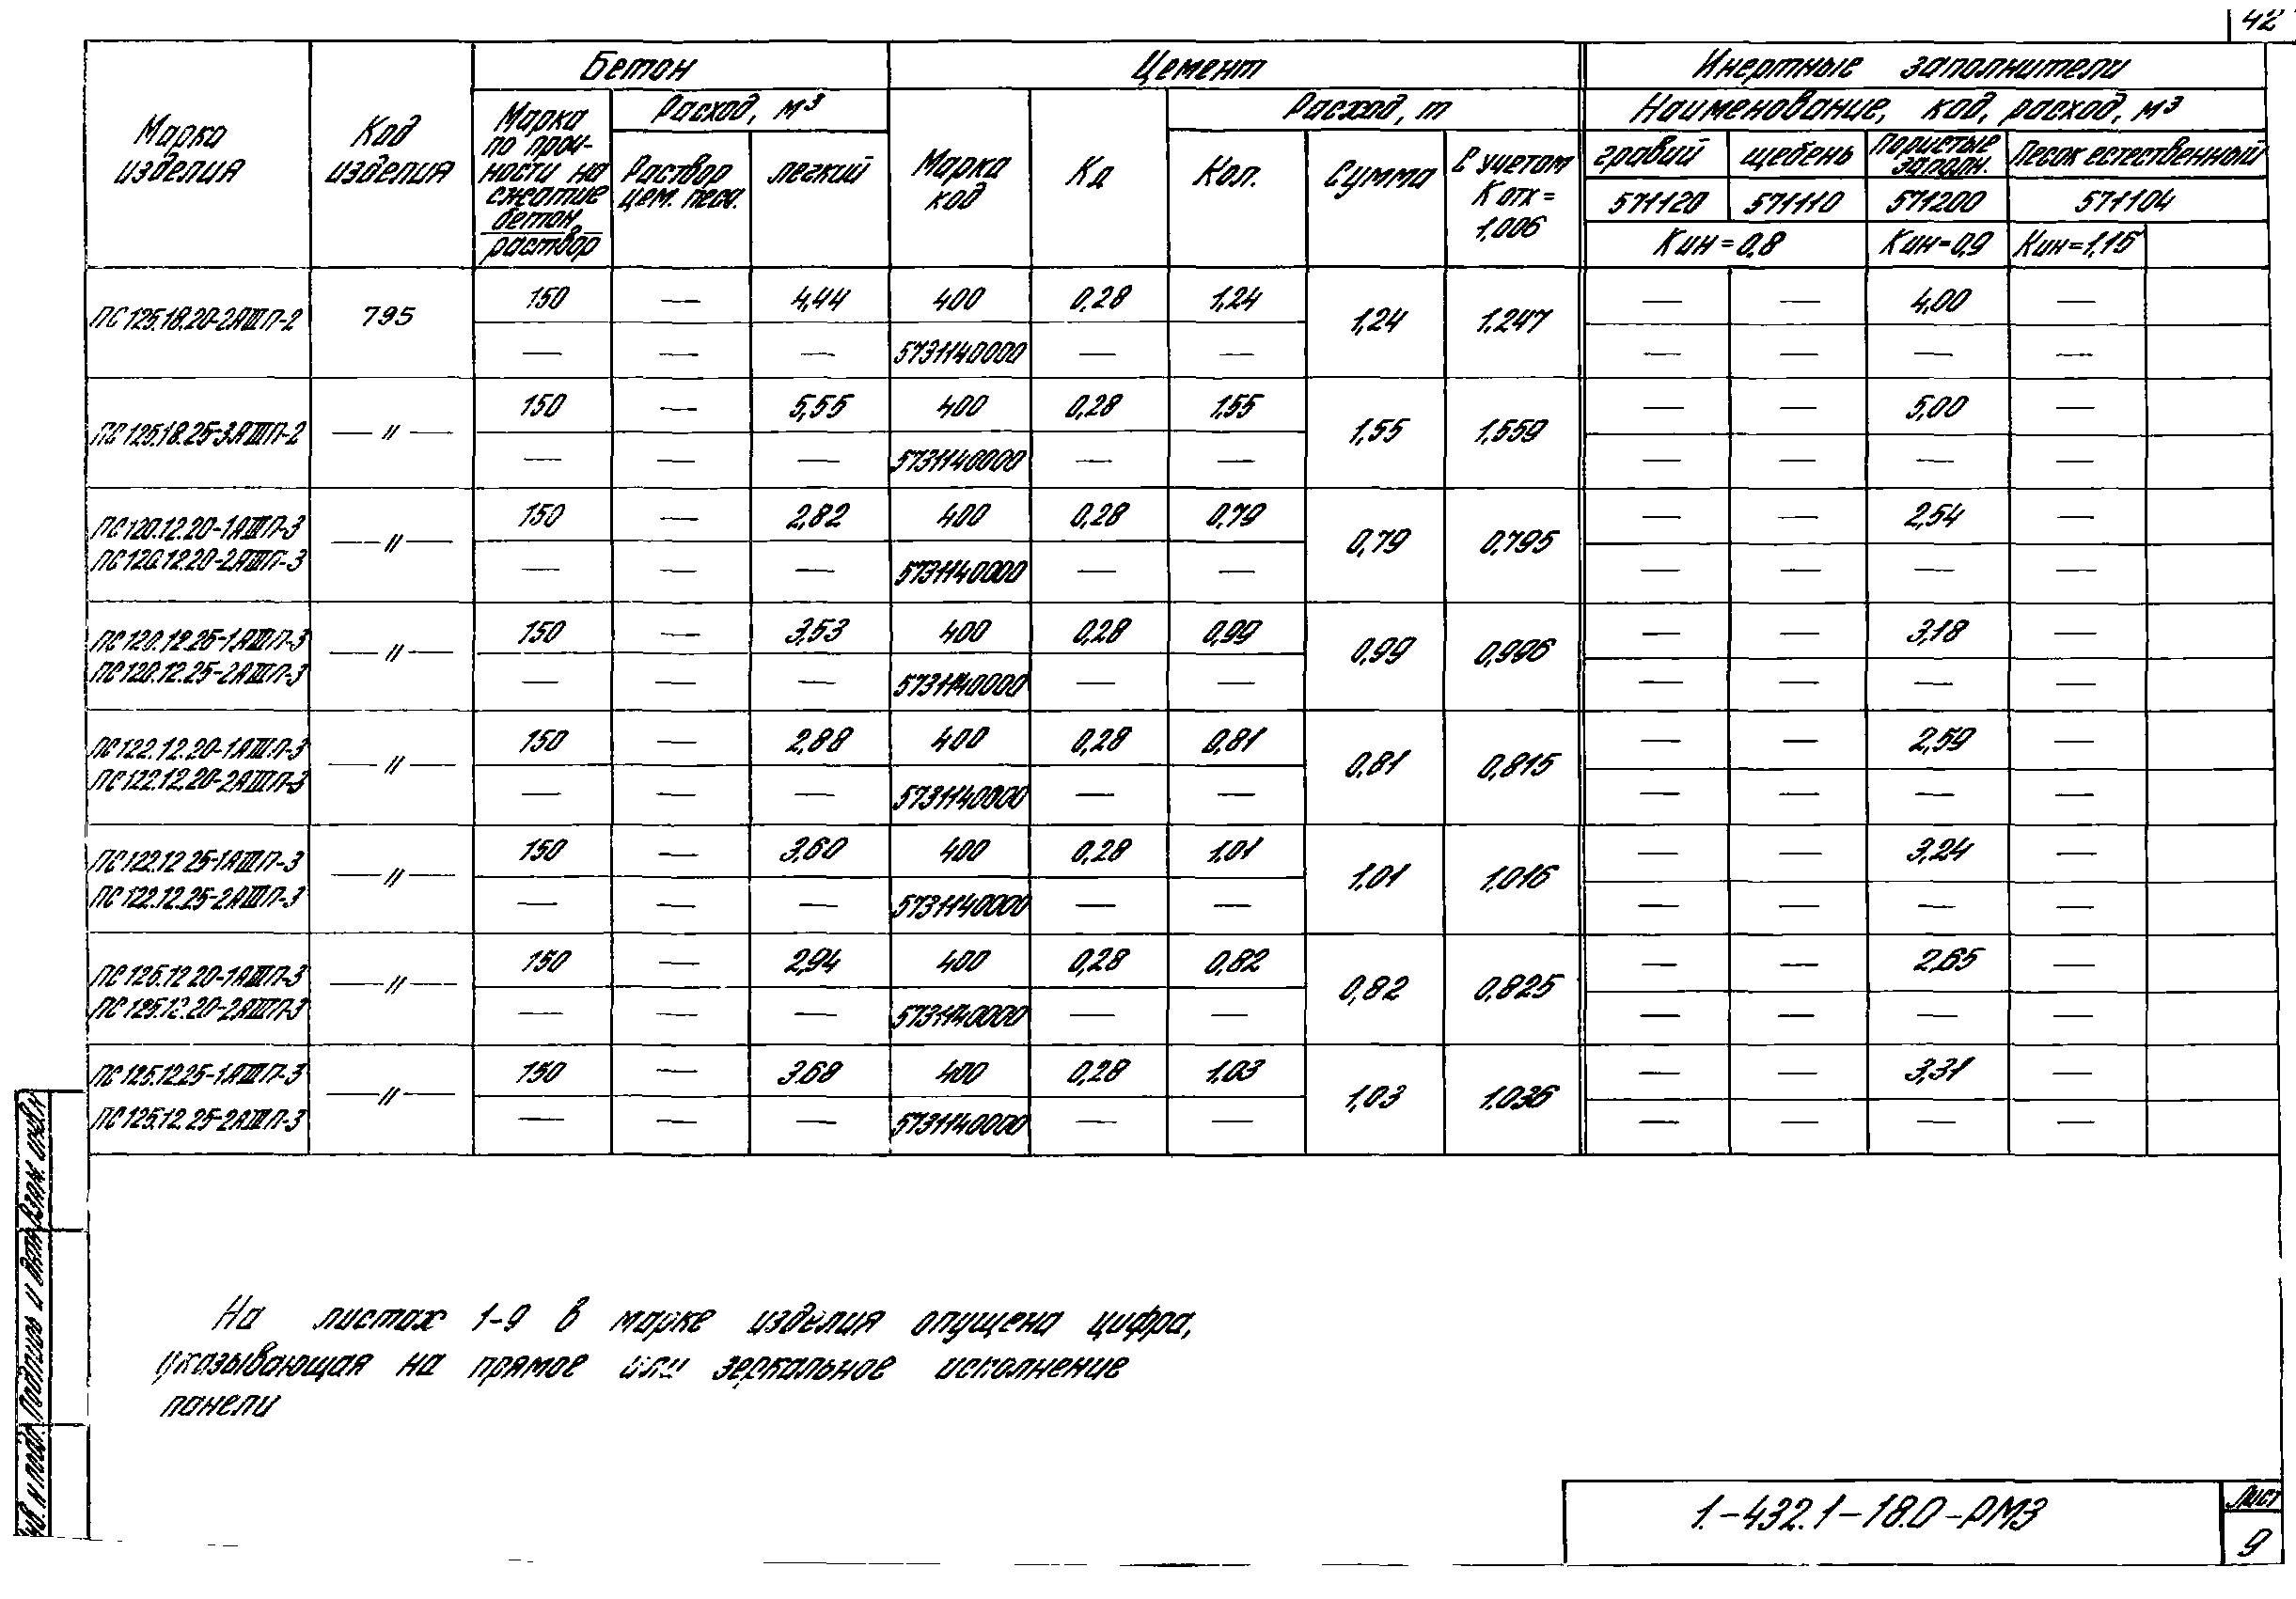 42
Бетон Цемент Инертные заполнители
Марка изделия
Код изделия
Марка по проч-
ности на
сжатие
бетон
раствор
Расход, м³
Раствор
цем. песч.
легкий
Марка
код
Кд
Расход, т
Кол.
Сумма
С учетом
Котх =
1,006
Наименование, код, расход, м³
гравий щебень Пористые заполн. Песок естественный
571120 571110 571200 571104
Кин=0,8 Кин=0,9 Кин=1,15
ПС125.18.20-2АIIIП-2 795 150 — 4,44 400 0,28 1,24 1,24 1,247 — — 4,00 —
— — — 5731140000 — — — — — —
ПС125.18.25-3АIIIП-2 —〃— 150 — 5,55 400 0,28 1,55 1,55 1,559 — — 5,00 —
— — — 5731140000 — — — — — —
ПС120.12.20-1АIIIП-3 —〃— 150 — 2,82 400 0,28 0,79 0,79 0,795 — — 2,54 —
ПС120.12.20-2АIIIП-3 — — — 5731140000 — — — — — —
ПС120.12.25-1АIIIП-3 —〃— 150 — 3,53 400 0,28 0,99 0,99 0,996 — — 3,18 —
ПС120.12.25-2АIIIП-3 — — — 5731140000 — — — — — —
ПС122.12.20-1АIIIП-3 —〃— 150 — 2,88 400 0,28 0,81 0,81 0,815 — — 2,59 —
ПС122.12.20-2АIIIП-3 — — — 5731140000 — — — — — —
ПС122.12.25-1АIIIП-3 —〃— 150 — 3,60 400 0,28 1,01 1,01 1,016 — — 3,24 —
ПС122.12.25-2АIIIП-3 — — — 5731140000 — — — — — —
ПС125.12.20-1АIIIП-3 —〃— 150 — 2,94 400 0,28 0,82 0,82 0,825 — — 2,65 —
ПС125.12.20-2АIIIП-3 — — — 5731140000 — — — — — —
ПС125.12.25-1АIIIП-3 —〃— 150 — 3,68 400 0,28 1,03 1,03 1,036 — — 3,31 —
ПС125.12.25-2АIIIП-3 — — — 5731140000 — — — — — —
На листах 1-9 в марке изделия опущена цифра,
указывающая на прямое или зеркальное исполнение
панели
1.-432.1-18.0-РМ3
Лист
9
Взам. инв.н
Подпись и дата
нв. н подл.